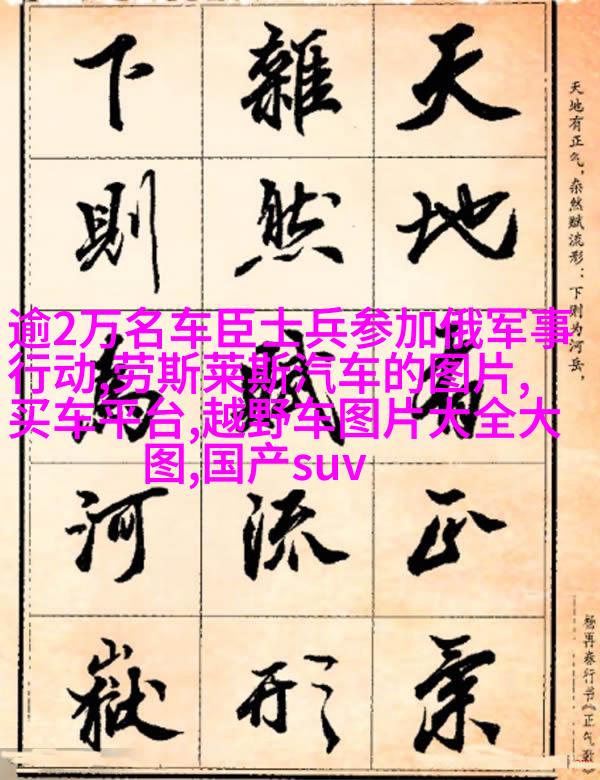 天地有正氣
雜然賦流形
下則為河嶽
天地有正气，杂然赋流形：下则为河岳，
杨再春行书《正气歌》
逾2万名车臣士兵参加俄军事
行动,劳斯莱斯汽车的图片,
买车平台,越野车图片大全大
图,国产suv